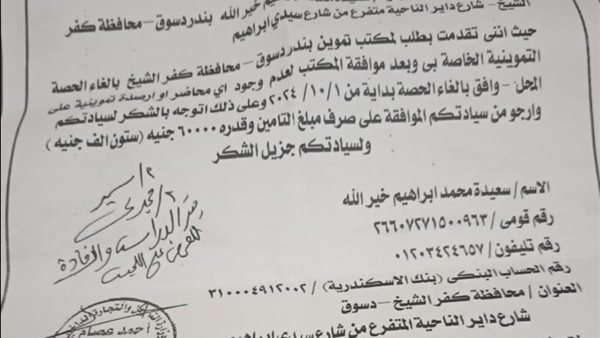 الشيخ - شارع داير الناحية متفرع من شارع سيدي ابراهيم
خير الله بندر دسوق - محافظة كفر
حيث اننى تقدمت بطلب لمكتب تموين بندر دسوق - محافظة كفر الشيخ بالغاء الحصة
التموينية الخاصة بى وبعد موافقة المكتب لعدم وجود اي محاضر او ارصدة تموينية على
المحل - وافق بالغاء الحصة بداية من ٢٠٢٤/١٠/١ وعلى ذلك اتوجه بالشكر لسيادتكم
وارجو من سيادتكم الموافقة على صرف مبلغ التامين وقدره ٦٠٠٠٠ جنيه (ستون الف جنيه)
ولسيادتكم جزيل الشكر
الاسم / سعيدة محمد ابراهيم خير الله
رقم قومى / ٢٦٦٠٧٢٧١٥٠٠٩٦٣
رقم تليفون / ٠١٢٠٣٤٢٤٦٥٧
رقم الحساب البنكى (بنك الاسكندرية) / ٣١٠٠٠٤٩١٢٠٠٢
العنوان / محافظة كفر الشيخ - دسوق
شارع داير الناحية المتفرع من شارع سيدي ابراهيم
للدراسة والافادة
والتجارة
احمد عصام